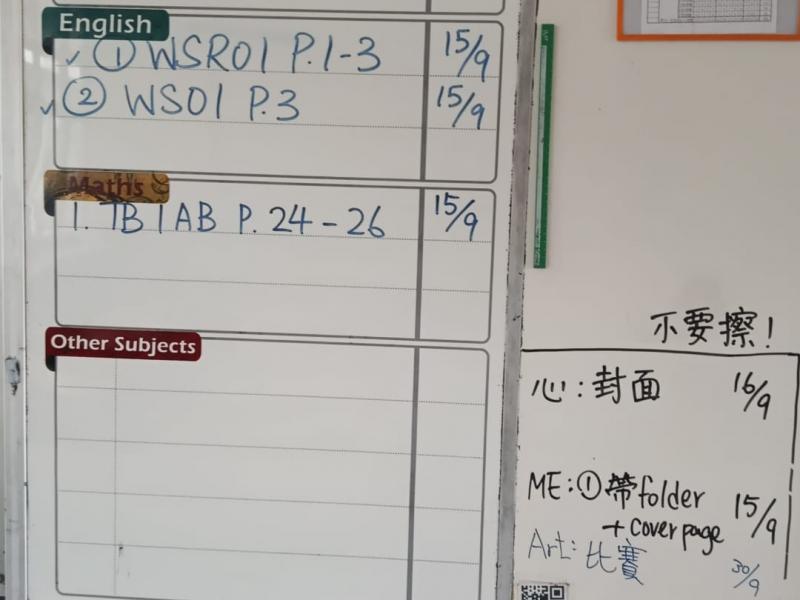 English
✓ ① WSR01 P.1-3 15/9
✓ ② WS01 P.3 15/9
Maths
1. TB1AB P. 24-26 15/9
Other Subjects
不要擦！
心：封面 16/9
ME：① 帶folder
+ cover page 15/9
Art：比賽 30/9